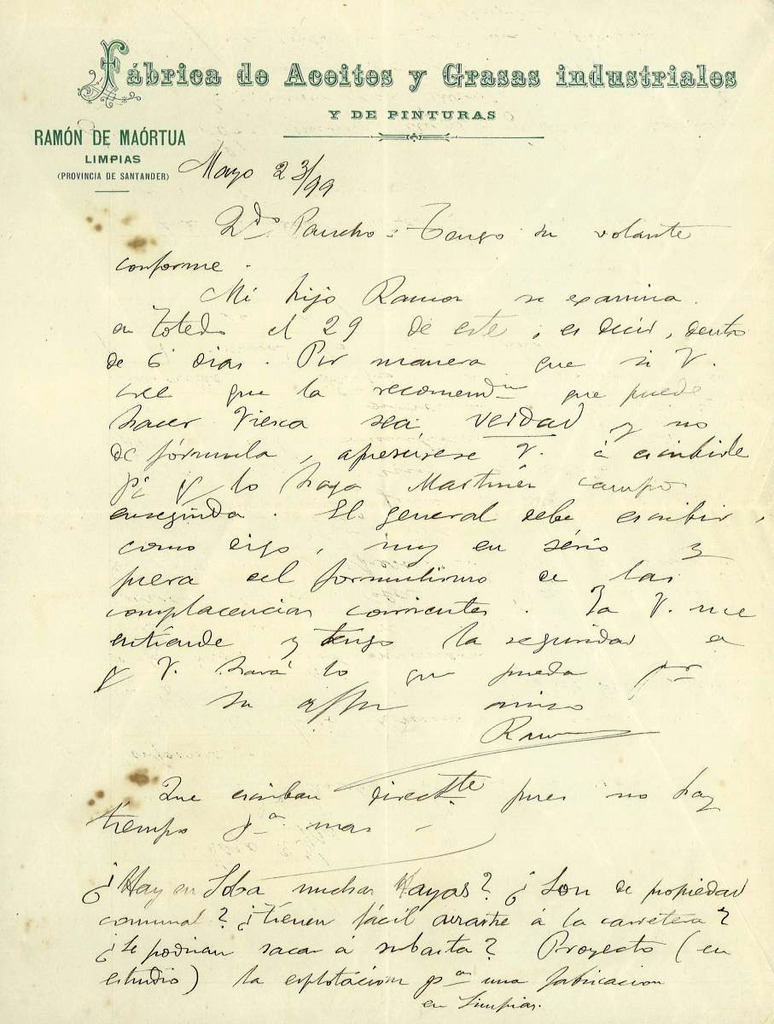 Fábrica de Aceites y Grasas industriales
Y DE PINTURAS
RAMÓN DE MAÓRTUA
LIMPIAS
(PROVINCIA DE SANTANDER)
Mayo 23/99
Qdo Pancho = Tengo su volante
conforme.
Mi hijo Ramon se examina
en Toledo el 29 de este, es decir, dentro
de 6 dias. Por manera que si V.
cree que la recomendon que puede
hacer Viesca sea verdad y no
de fórmula, apresurese V. á escribirle
pa q lo haga Martinez Campos
enseguida. El general debe escribir,
como digo, muy en sério y
fuera del formulismo de las
complacencias corrientes. Ya V. me
entiende y tengo la seguridad de
q V. hará lo que pueda por
su affmo amigo
Ramon
Que escriban directte pues no hay
tiempo pa mas -
¿Hay en Soba muchas Hayas? ¿Son de propiedad
comunal? ¿Tienen fácil arrastre á la carretera?
¿Se podrian sacar á subasta? Proyecto (en
estudio) la esplotacion pa una fabricacion
en Limpias.